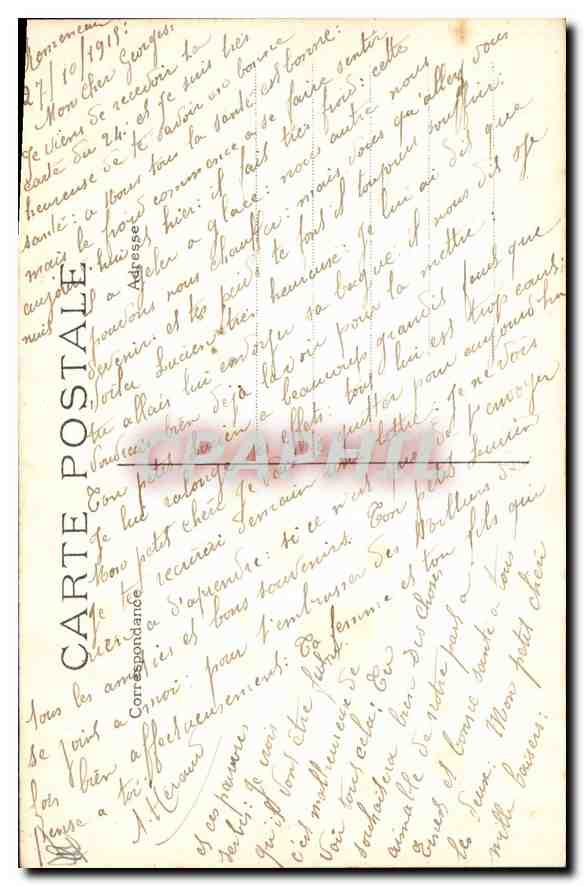 27/10/1915:
Mon Cher Georges:
Je viens de recevoir ta
carte du 24: et Je suis très
heureuse de te savoir en bonne
santé: a nous tous la santé est bonne:
mais le froid commence a se faire sentir
aujourd'hui et hier: il fait très froid: cette
nuit il a geler a glace: nous autre nous
pouvons nous chauffer: mais vous qu'allez vous
devenir: et tes pieds te font il toujours souffrir:
Voila Lucien très heureuse: Je lui ai dis que
tu allais lui envoyer sa bague il nous dis
voudrais bien déjà la voir pour la mettre:
Ton petit Lucien a beaucoup grandis faut que
Je lui ralonge ses effets: tout lui est trop court:
Mon petit chéri Je vais te quitter pour aujourd'hui
Je te recrirai demain ma lettre: Je ne vois
rien a d'aprendre: si ce n'est que de t'envoyer
tous les amitiés et bons souvenirs. Ton petit Lucien
se joint a moi: pour t'embrasser des milliers de
fois bien affectueusement: Ta femme et ton fils qui
pense a toi:
A. Héraud
CARTE POSTALE
Correspondance
Adresse
CPAPHIL
et ces pauvres
serbes: Je vois
qu'il vont être
c'est malheureux de
voir tous cela: Tu
souhaitera bien des choses
aimable de notre part a
Ernest et bonne santé a tous
les deux. Mon petit chéri
mille baisers: